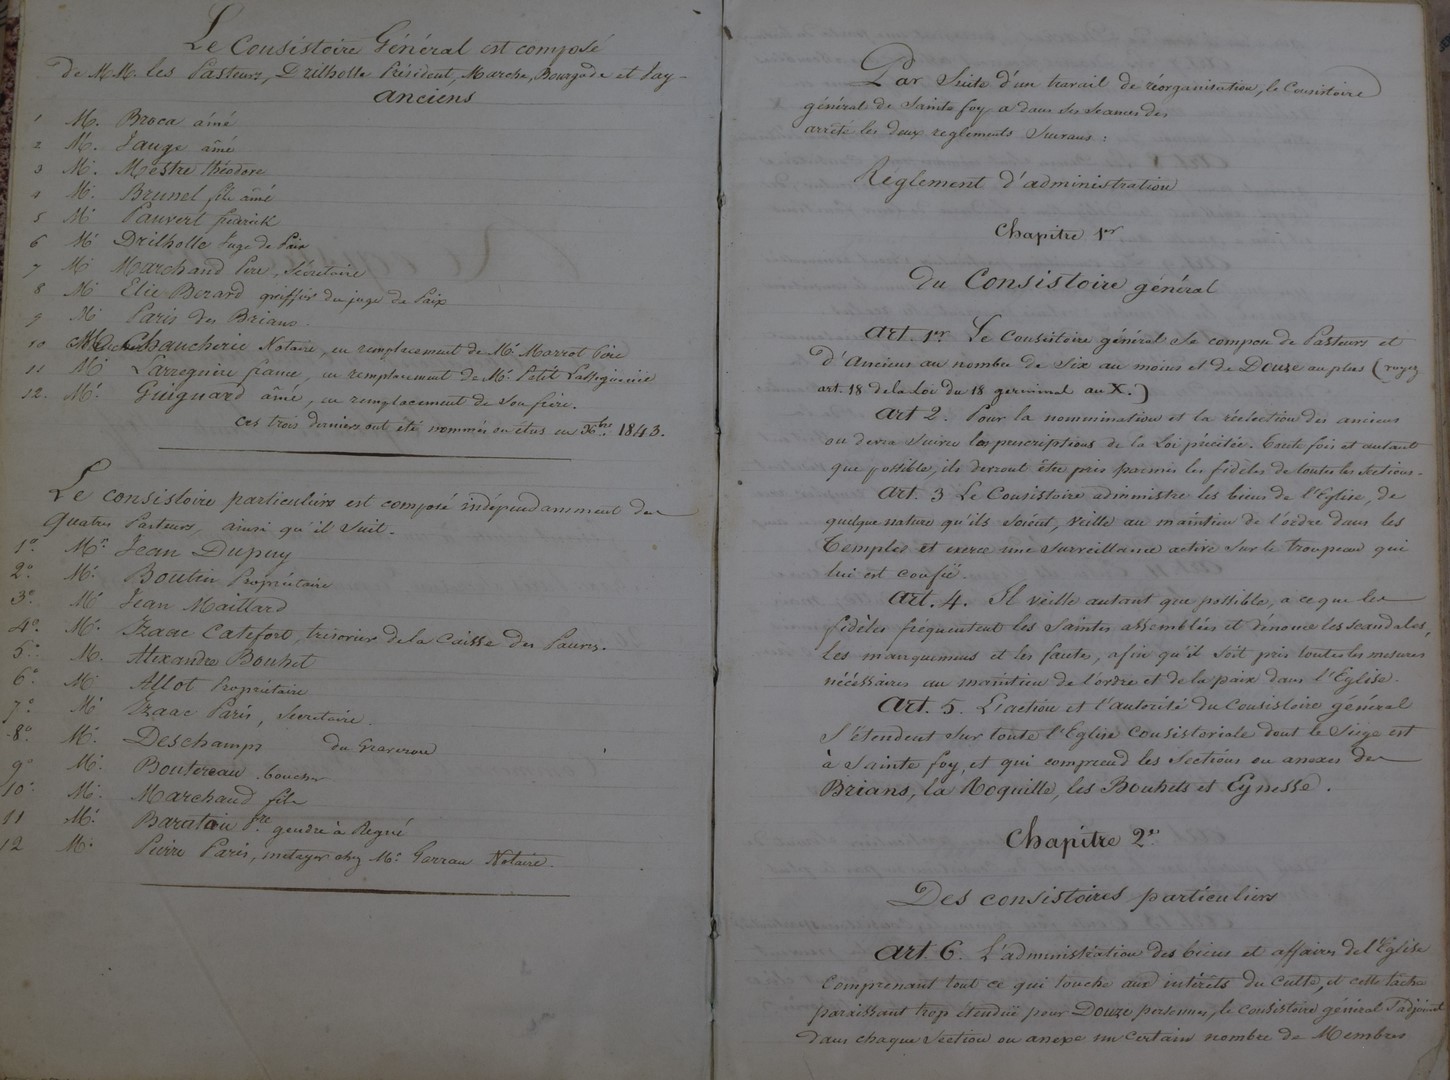 Le Consistoire Général est composé
de M.M. les Pasteurs, Drilholle Président, Marche, Bourgade et Pay-
anciens
1 M. Broca aîné
2 M. Jauge aîné
3 M. Mestre théodore
4 M. Brunel fils aîné
5 M. Pauvert
6 Mr Drilholle Juge de Paix
7 M. Marchand Père, Sécretaire
8 M. Elie Bezard greffier du juge de Paix
9 M. Paris des Brians
10 Chaucherie Notaire, en remplacement de Mr. Marrot Père
11 Mr Larregnire, en remplacement de Mr. Petit
12. Mr. Guignard aîné, en remplacement de son frère.
Ces trois derniers ont été nommés ou élus en Xbre 1843.
Le consistoire particuliers est composé indépendamment des
quatres Pasteurs, ainsi qu'il suit.
1º Mr. Jean Dupuy
2º Mr. Boutin Propriétaire
3º Mr Jean Maillard
4º M. Izaac Catefort, trésorier de la Caisse des Pauvres.
5º M. Alexandre Bouhet
6º M. Allot Propriétaire
7º Mr Izaac Paris, Secretaire.
8º M. Deschamps du
9º M. Boutereau boucher
10º M. Marchand fils
11 Mr Baratain gendre à Regné
12 M. Pierre Paris, métayer chez Mr. Garrau Notaire.
Par Suite d'un travail de réorganisation, le Consistoire
général de Sainte foy a dans ses séances des
arrêté les deux reglements Suivans :
Règlement d'administration
Chapitre 1er
du Consistoire général
art. 1er Le Consistoire général se compose de Pasteurs et
d'Anciens au nombre de Six au moins et de Douze au plus (voyez
art. 18 de la Loi du 18 germinal an X.)
art 2. Pour la nommination et la réélection des anciens
on devra suivre les prescriptions de la Loi précitée. Toute fois et autant
que possible, ils devront être pris parmis les fidèles de toutes les sections.
art. 3 Le Consistoire administre les biens de l'Eglise, de
quelque nature qu'ils soient, veille au maintien de l'ordre dans les
Temples et exerce une surveillance active sur le troupeau qui
lui est confié.
art. 4. Il veille autant que possible, a ce que les
fidèles fréquentent les Saintes assemblées et dénonce les scandales,
les manquemens et les fautes, afin qu'il soit pris toutes les mesures
nécessaires au maintien de l'ordre et de la paix dans l'Eglise.
art. 5. L'action et l'autorité du Consistoire général
s'étendent sur toute l'Eglise Consistoriale dont le Siège est
à Sainte foy, et qui comprend les sections ou anexes des
Brians, la Roquille, les Bouhets et Eynesse.
Chapitre 2e
Des consistoires particuliers
art. 6. L'administration des biens et affaires de l'Eglise
Comprenant tout ce qui touche aux intérêts du culte, et cette tache
paraissant trop étendue pour Douze personnes, le consistoire général s'adjoint
dans chaque section ou anexe un certain nombre de Membres